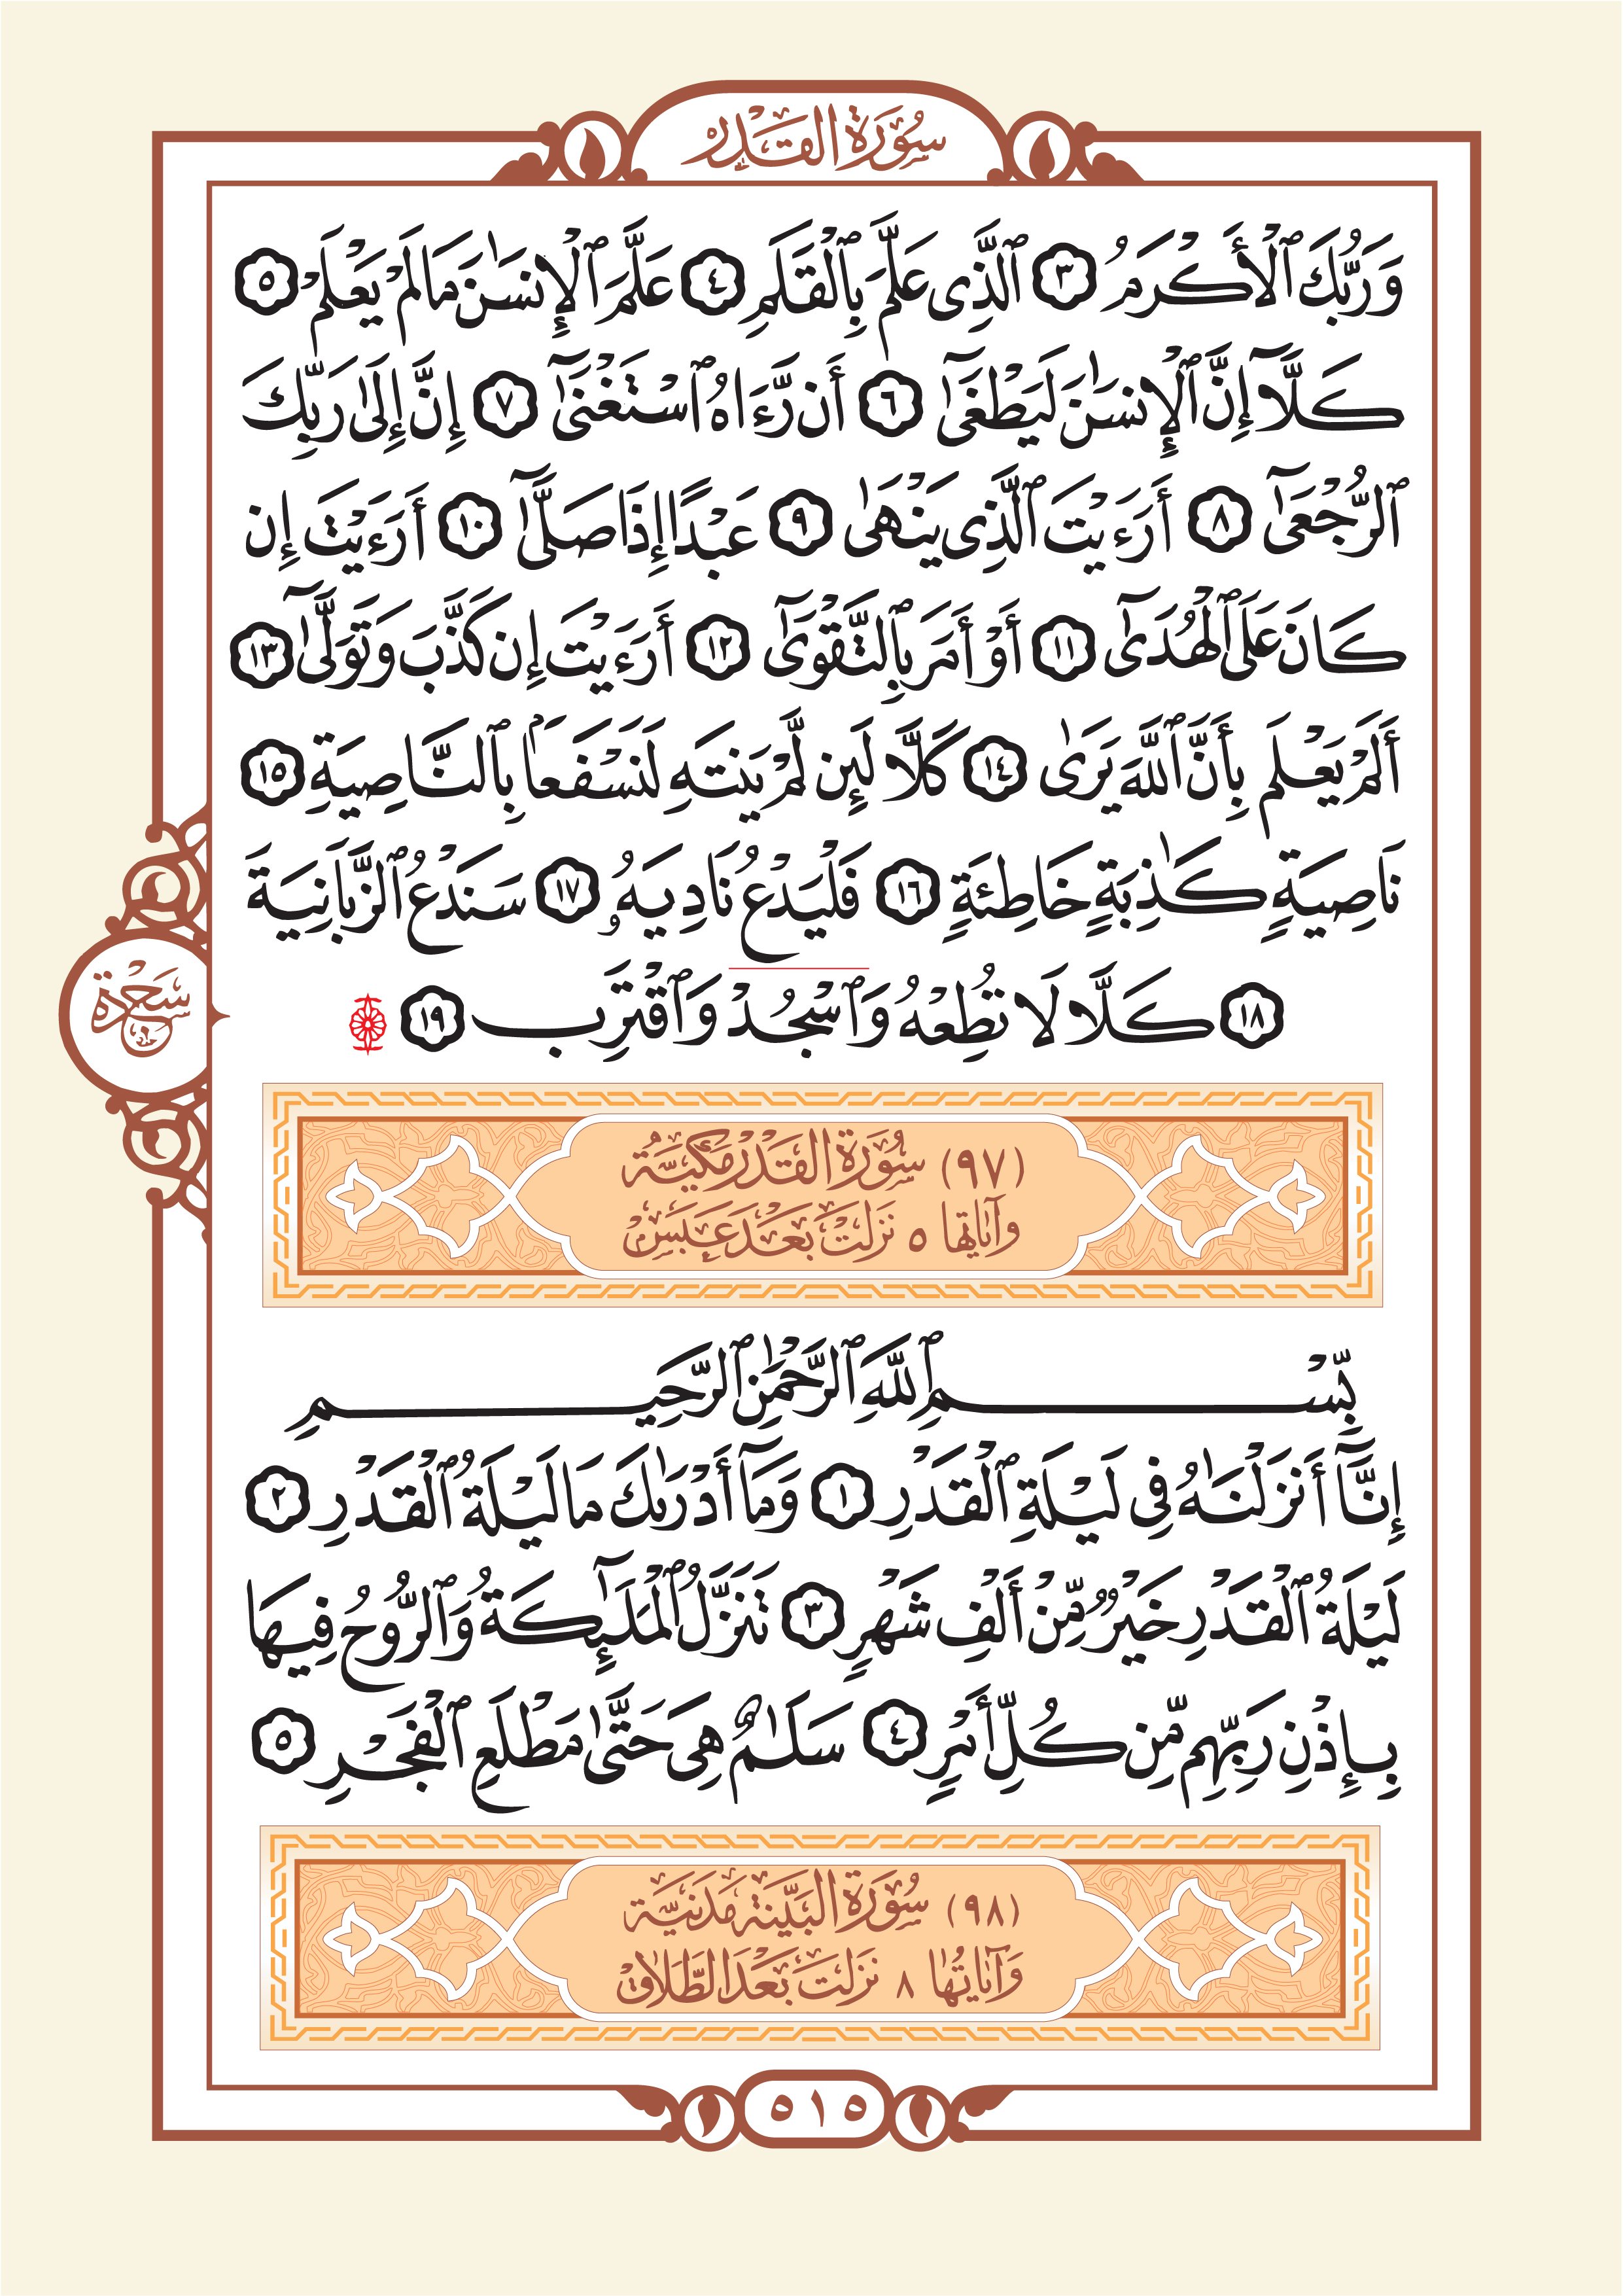 سُورَةُ الْقَدْرِ
وَرَبُّكَ ٱلْأَكْرَمُ ٣ ٱلَّذِى عَلَّمَ بِٱلْقَلَمِ ٤ عَلَّمَ ٱلْإِنسَٰنَ مَا لَمْ يَعْلَمْ ٥
كَلَّآ إِنَّ ٱلْإِنسَٰنَ لَيَطْغَىٰٓ ٦ أَن رَّءَاهُ ٱسْتَغْنَىٰٓ ٧ إِنَّ إِلَىٰ رَبِّكَ
ٱلرُّجْعَىٰٓ ٨ أَرَءَيْتَ ٱلَّذِى يَنْهَىٰ ٩ عَبْدًا إِذَا صَلَّىٰٓ ١٠ أَرَءَيْتَ إِن
كَانَ عَلَى ٱلْهُدَىٰٓ ١١ أَوْ أَمَرَ بِٱلتَّقْوَىٰٓ ١٢ أَرَءَيْتَ إِن كَذَّبَ وَتَوَلَّىٰٓ ١٣
أَلَمْ يَعْلَم بِأَنَّ ٱللَّهَ يَرَىٰ ١٤ كَلَّا لَئِن لَّمْ يَنتَهِ لَنَسْفَعًۢا بِٱلنَّاصِيَةِ ١٥
نَاصِيَةٍ كَٰذِبَةٍ خَاطِئَةٍ ١٦ فَلْيَدْعُ نَادِيَهُۥ ١٧ سَنَدْعُ ٱلزَّبَانِيَةَ
١٨ كَلَّا لَا تُطِعْهُ وَٱسْجُدْ وَٱقْتَرِب ١٩
سَجْدَة
(٩٧) سُورَةُ الْقَدْرِ مَكِّيَّةٌ
وآيَاتها ٥ نَزَلَتْ بَعْدَ عَبَسَ
بِّسْمِ ٱللَّهِ ٱلرَّحْمَٰنِ ٱلرَّحِيمِ
إِنَّآ أَنزَلْنَٰهُ فِى لَيْلَةِ ٱلْقَدْرِ ١ وَمَآ أَدْرَىٰكَ مَا لَيْلَةُ ٱلْقَدْرِ ٢
لَيْلَةُ ٱلْقَدْرِ خَيْرٌ مِّنْ أَلْفِ شَهْرٍ ٣ تَنَزَّلُ ٱلْمَلَٰٓئِكَةُ وَٱلرُّوحُ فِيهَا
بِإِذْنِ رَبِّهِم مِّن كُلِّ أَمْرٍ ٤ سَلَٰمٌ هِىَ حَتَّىٰ مَطْلَعِ ٱلْفَجْرِ ٥
(٩٨) سُورَةُ الْبَيِّنَةِ مَدَنِيَّة
وَآيَاتُهَا ٨ نَزَلَتْ بَعْدَ الطَّلَاقِ
٥١٥